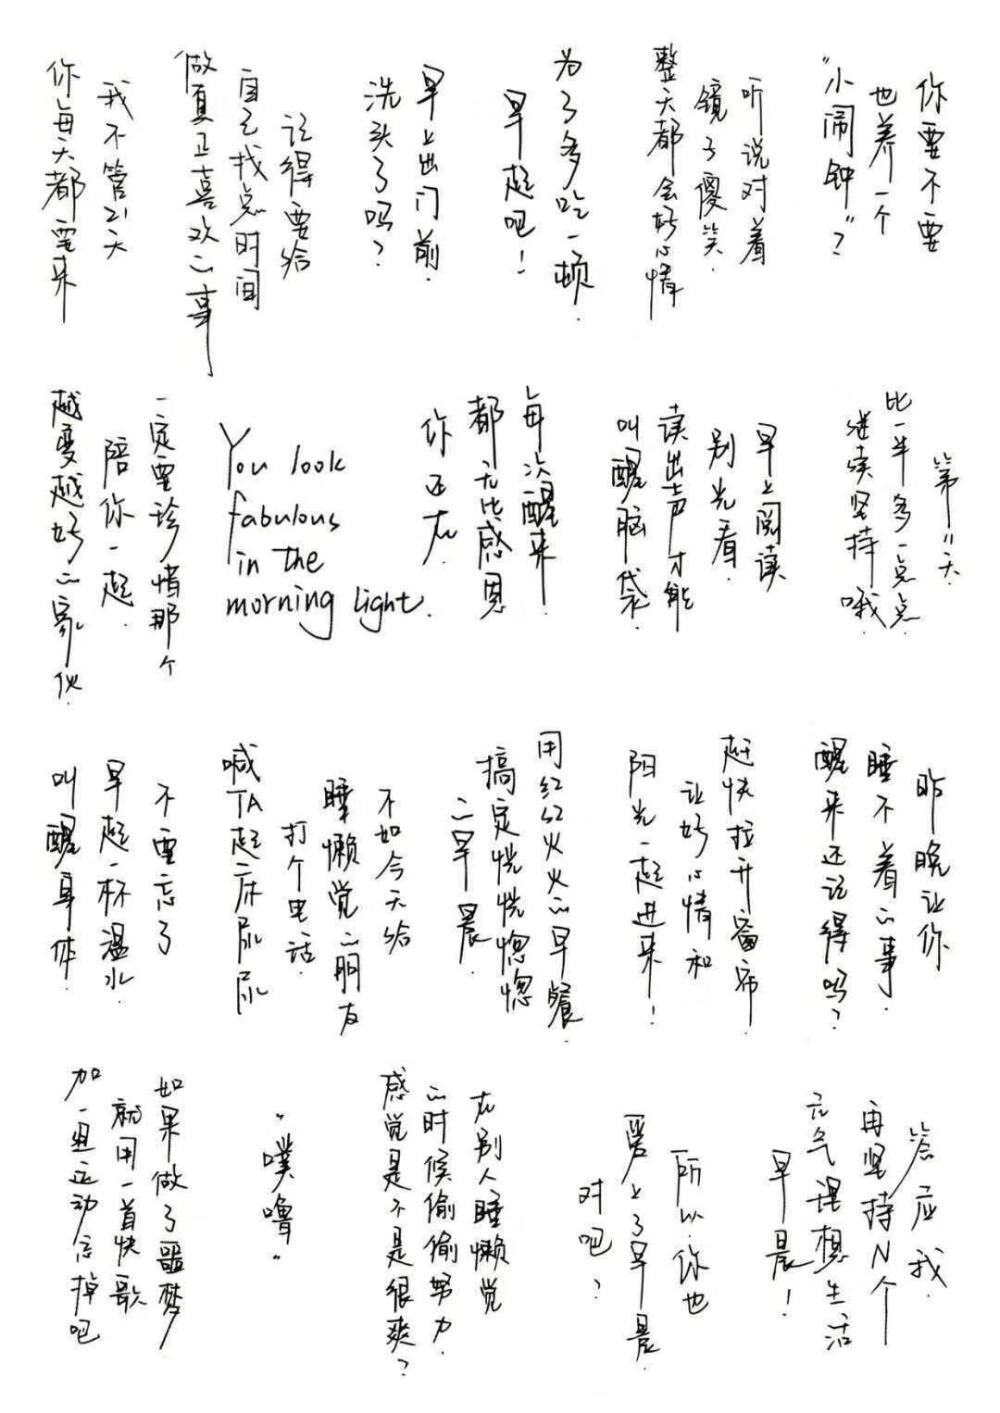 你要不要
也养一个
“小闹钟”？
听说对着
镜子傻笑.
整天都会好心情.
为了多吃一顿.
早起吧！
早上出门前.
洗头了吗？
记得要给
自己找点时间
做真正喜欢的事
我不管21天
你每天都要来
第11天.
比一半多一点点.
继续坚持哦.
早上阅读
别光看.
读出声才能
叫醒脑袋.
每次醒来.
都无比感恩
你还在.
You look
fabulous
in the
morning light.
一定要珍惜那个
陪你一起.
越变越好的家伙.
昨晚让你
睡不着的事.
醒来还记得吗？
赶快拉开窗帘.
让好心情和
阳光一起进来！
用红红火火的早餐.
搞定恍恍惚惚
的早晨.
不如今天给
睡懒觉的朋友
打个电话.
喊TA起床尿尿
不要忘了
早起一杯温水.
叫醒身体.
答应我.
再坚持N个
元气理想生活
早晨！
所以你也
爱上了早晨.
对吧？
在别人睡懒觉
的时候偷偷努力.
感觉是不是很爽？
“噗噜”
如果做了噩梦.
就用一首快歌
加一组运动忘掉吧